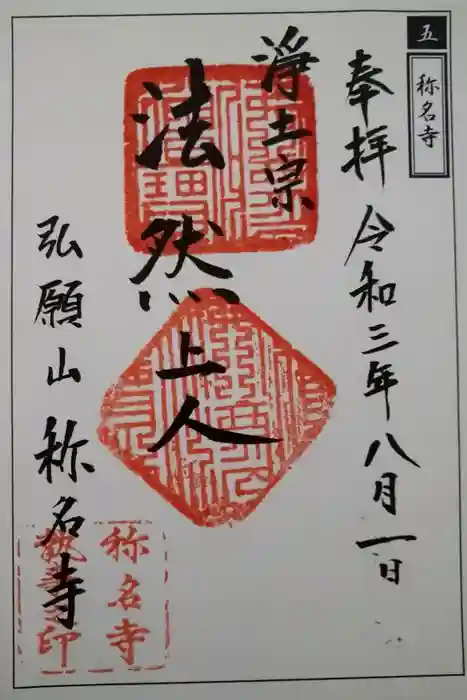 五
称名寺
奉拝 令和三年八月一日
淨土宗
法然上人
弘願山 称名寺
称名寺
印